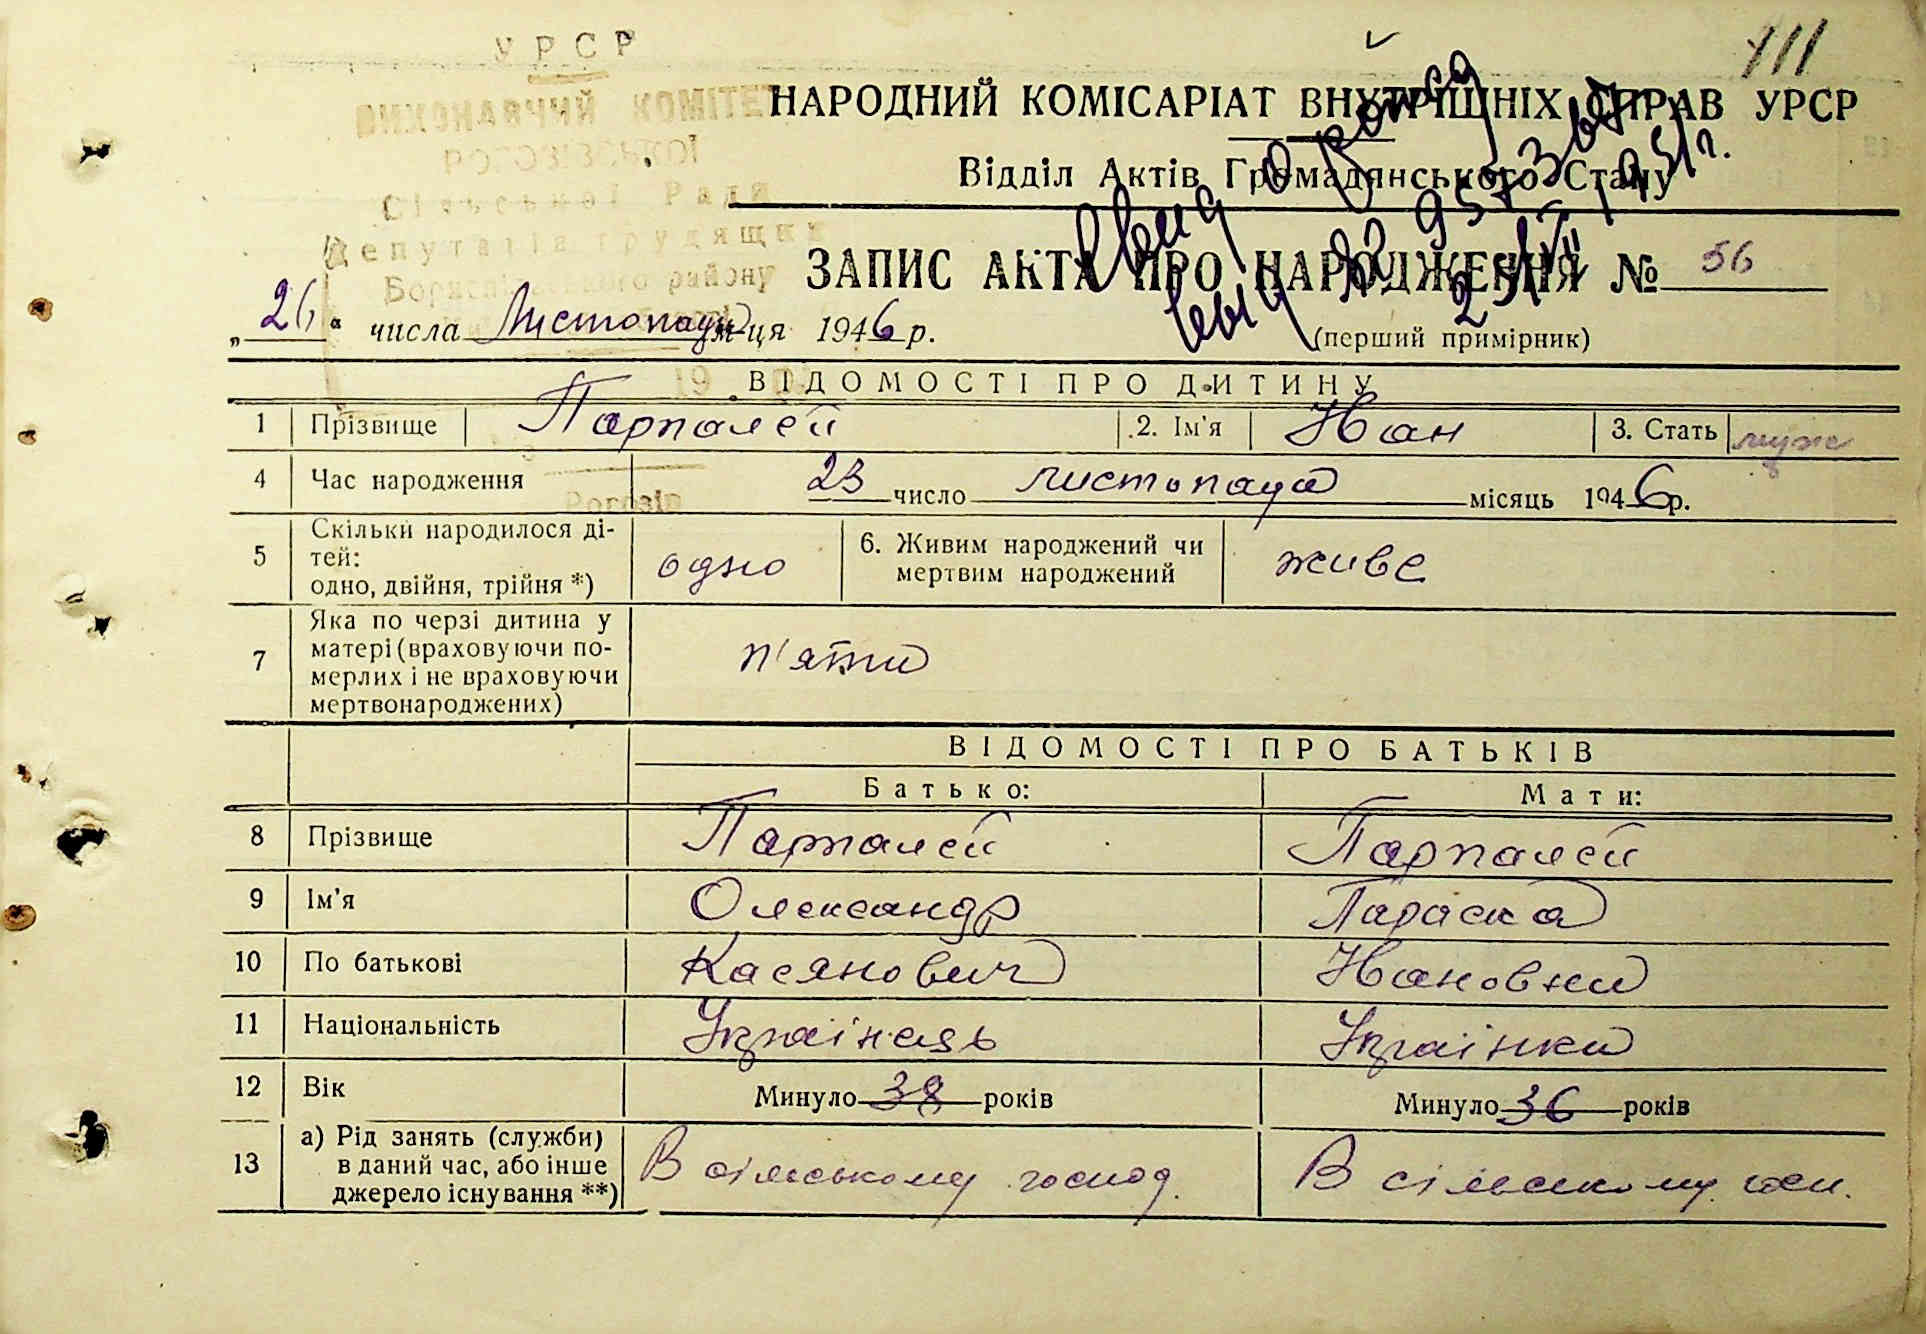 111
УРСР
ВИКОНАВЧИЙ КОМІТЕТ
РОГОЗІВСЬКОЇ
Сільської Ради
Депутатів трудящих
Бориспільського району
19
Рогозів
НАРОДНИЙ КОМІСАРІАТ ВНУТРІШНІХ СПРАВ УРСР
Відділ Актів Громадянського Стану
ЗАПИС АКТА ПРО НАРОДЖЕННЯ № 56
„26“ числа Листопада м-ця 1946 р.
(перший примірник)
ВІДОМОСТІ ПРО ДИТИНУ
1 Прізвище Парпалей 2. Ім'я Іван 3. Стать муж
4 Час народження 23 число листопада місяць 1946 р.
5 Скільки народилося ді-
тей:
одно, двійня, трійня *) одно 6. Живим народжений чи
мертвим народжений живе
7 Яка по черзі дитина у
матері (враховуючи по-
мерлих і не враховуючи
мертвонароджених) п'ята
ВІДОМОСТІ ПРО БАТЬКІВ
Батько: Мати:
8 Прізвище Парпалей Парпалей
9 Ім'я Олександр Параска
10 По батькові Касянович Івановна
11 Національність Українець Українка
12 Вік Минуло 38 років Минуло 36 років
13 а) Рід занять (служби)
в даний час, або інше
джерело існування **) В сільському господ. В сільському госп.